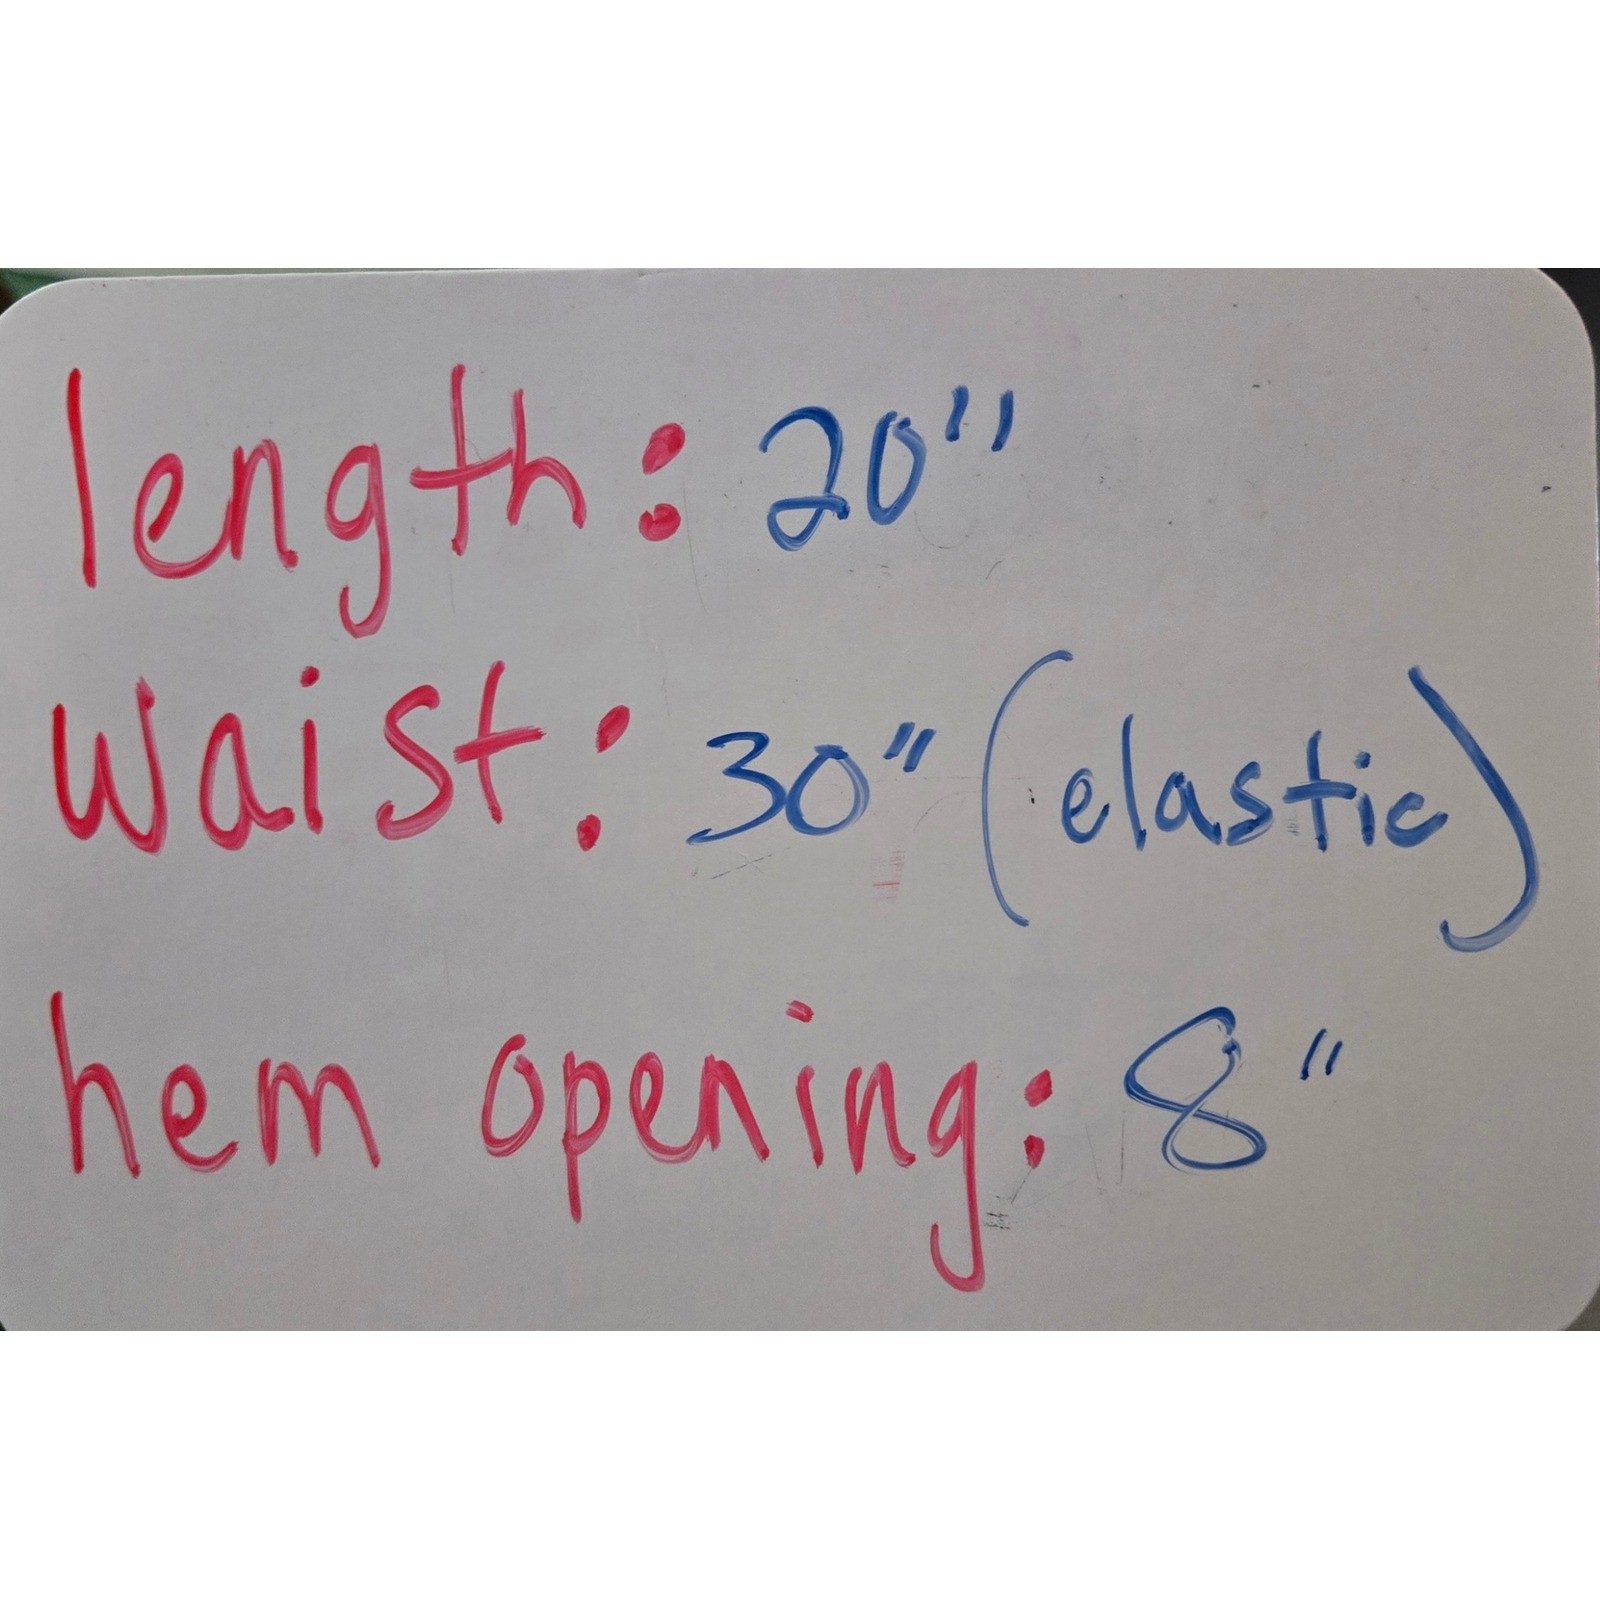 length: 20"
waist: 30" (elastic)
hem opening: 8"